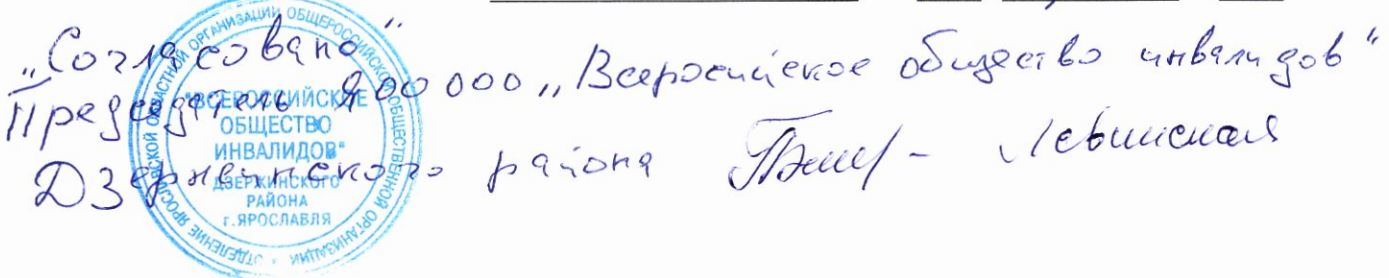 „Согласовано"
Председатель ЯОО ООО „Всероссийское общество инвалидов"
Дзержинского района Левинская
ОТДЕЛЕНИЕ ЯРОСЛАВСКОЙ ОБЛАСТНОЙ ОРГАНИЗАЦИИ ОБЩЕРОССИЙСКОЙ ОБЩЕСТВЕННОЙ ОРГАНИЗАЦИИ
"ВСЕРОССИЙСКИЕ
ОБЩЕСТВО
ИНВАЛИДОВ"
ДЗЕРЖИНСКОГО
РАЙОНА
г.ЯРОСЛАВЛЯ